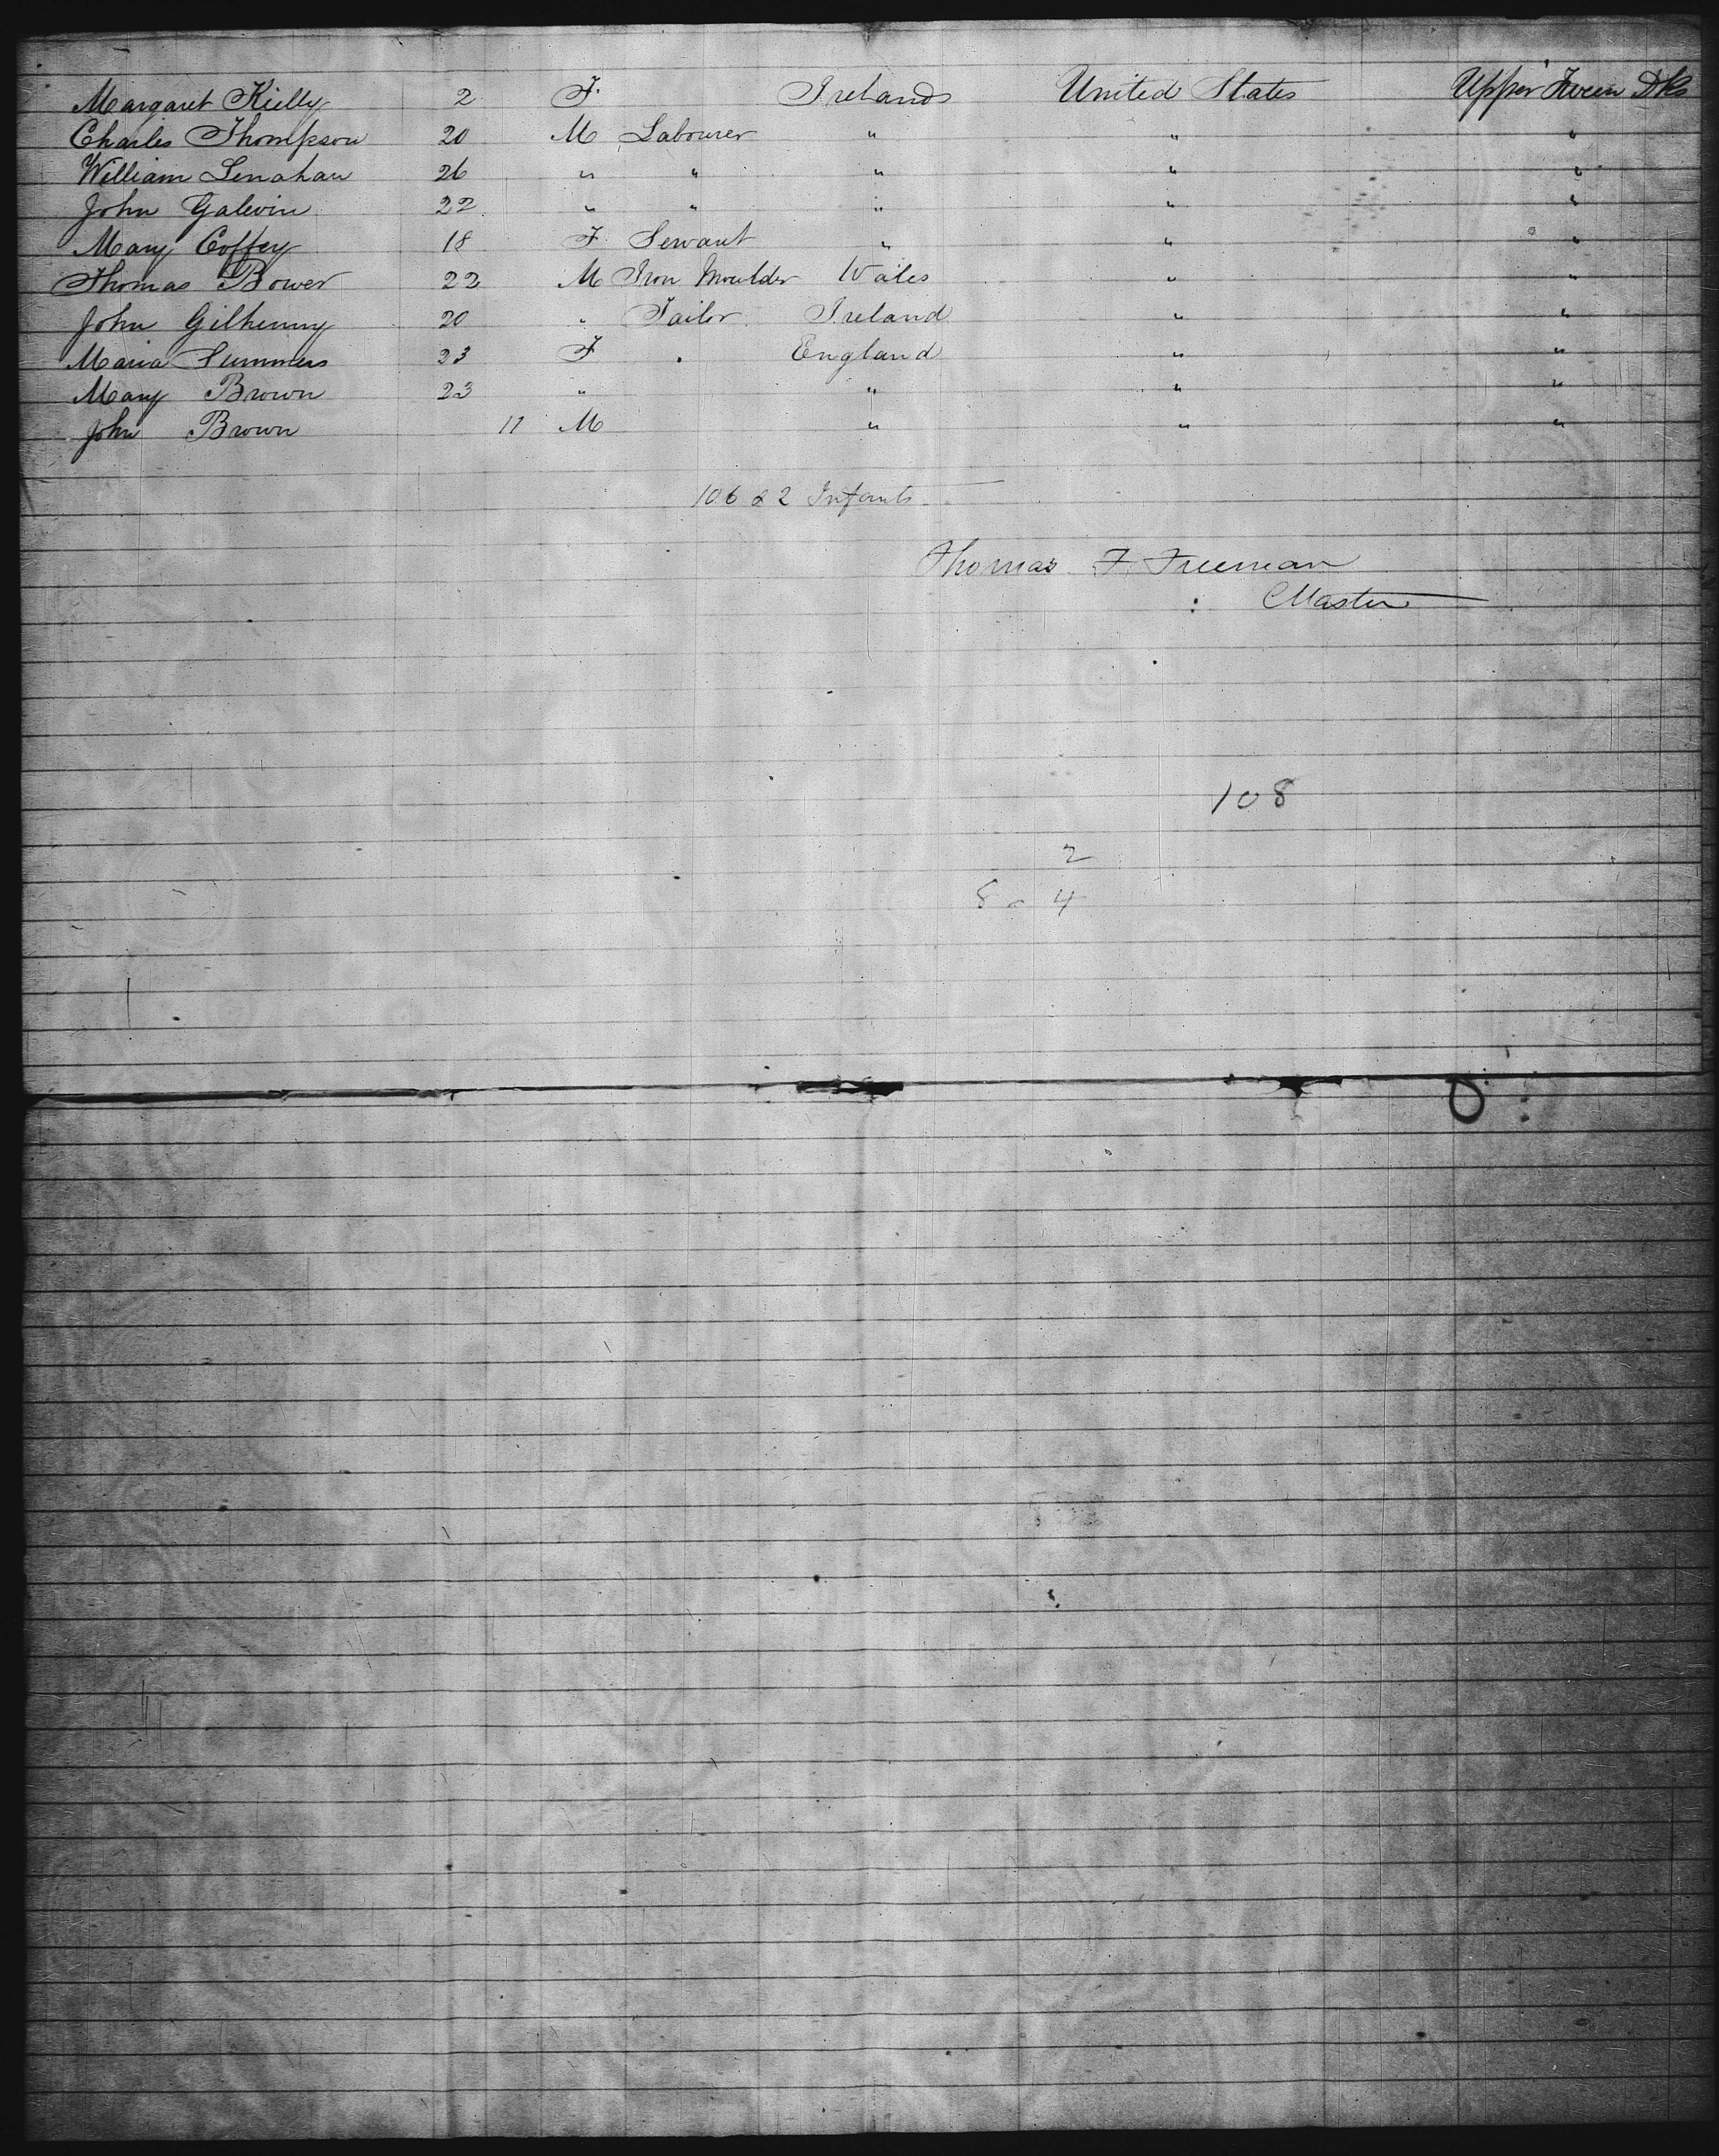 Margaret Kielly 2 F. Ireland United States Upper Tween Dks
Charles Thompson 20 M Labourer " " "
William Lenahan 26 " " " " "
John Galevin 22 " " " " "
Mary Coffey 18 F. Servant " " "
Thomas Bower 22 M Iron Moulder Wales " "
John Gilhenny 20 " Tailor Ireland " "
Maria Summers 23 F . England " "
Mary Brown 23 " " " "
John Brown 11 M " " "
106 & 2 Infants
Thomas F. Freeman
Master
108
2
4